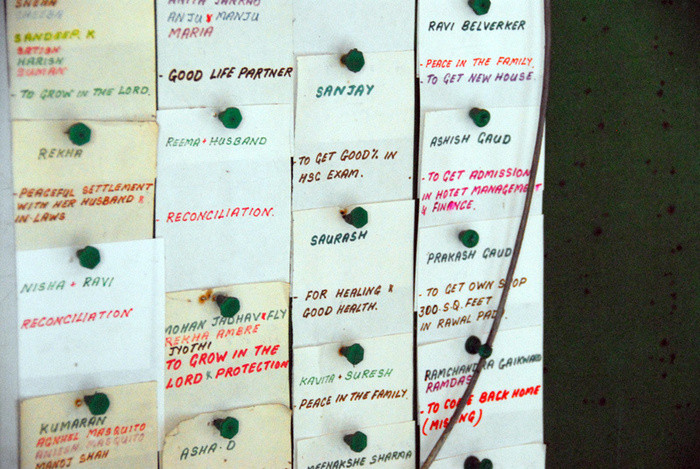 SANDEEP K
SATISH
HARISH
SUMAN
- TO GROW IN THE LORD.
REKHA
- PEACEFUL SETTLEMENT
WITH HER HUSBAND &
IN-LAWS
NISHA + RAVI
RECONCILIATION
KUMARAN
AGNHEL MASQUITO
MASQUITO
MANOJ SHAH
ANJU & MANJU
MARIA
- GOOD LIFE PARTNER
REEMA + HUSBAND
- RECONCILIATION.
MOHAN JADHAV & FLY
REKHA AMBRE
JYOTHI
TO GROW IN THE
LORD & PROTECTION
ASHA-D
SANJAY
- TO GET GOOD % IN
HSC EXAM.
SAURASH
- FOR HEALING &
GOOD HEALTH.
KAVITA + SURESH
- PEACE IN THE FAMILY.
MEENAKSHE SHARMA
RAVI BELVERKER
- PEACE IN THE FAMILY.
- TO GET NEW HOUSE.
ASHISH GAUD
- TO GET ADMISSION
IN HOTET MANAGEMENT
& FINANCE.
PRAKASH GAUD
- TO GET OWN SHOP
300 S.Q. FEET
IN RAWAL PADA
RAMCHANDRA GAIKWAD
RAMDAS
- TO COME BACK HOME
(MISSING)